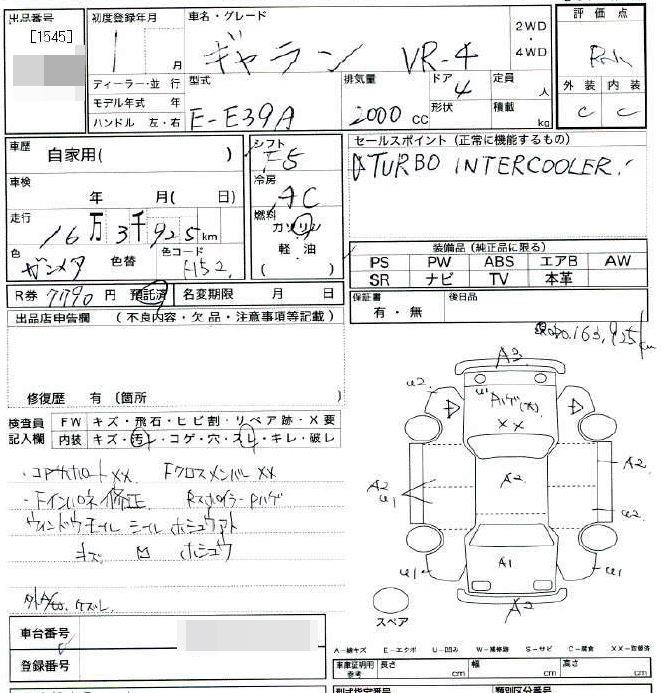 出品番号 初度登録年月 車名・グレード 2WD・4WD 評価点
[1545] 1 月 ギャラン VR-4
ディーラー・並 行 型式 排気量 ドア 4 定員 人 外装 内装
モデル年式 年 E-E39A 2000 cc 形状 積載 kg C C
ハンドル 左・右
車歴 自家用( ) シフト F5 セールスポイント (正常に機能するもの)
TURBO INTERCOOLER!
車検 年 月( 日) 冷房 AC
走行 16万3千925km 燃料 ガソリン
軽・油
( )
色 ガンメタ 色替 色コード F152. 装備品 (純正品に限る)
PS PW ABS エアB AW
SR ナビ TV 本革
R券 7790 円 預託済 名変期限 月 日 保証書 有・無 後日品
出品店申告欄 (不良内容・欠品・注意事項等記載)
163,925km
修復歴 有 (箇所 )
検査員記入欄 FW キズ・飛石・ヒビ割・リペア跡・X要
内装 キズ・汚レ・コゲ・穴・スレ・キレ・破レ
・コアサポートXX Fクロスメンバー XX
・Fインパネ修正 Rスポイラー Pハゲ
ウィンドウモール シール ホシュウアト
キズ ホシュウ
ケズレ
A3
u2
u1 Pハゲ(大)
XX
A2
A2
A2
u1
u2
A1
u1
u1
A2
スペア
車台番号
登録番号
A-線キズ E-エクボ U-凹み W-補修跡 S-サビ C-腐食 XX-交換済
車庫証明用参考 長さ cm 幅 cm 高さ cm
型式指定番号 類別区分番号